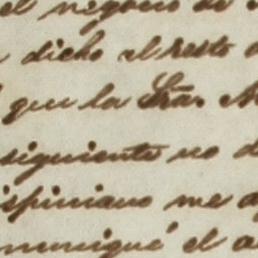 el negocio de
dicho el resto
que la Sra. M
siguiente no d
ispiniano me a
muniqué el a